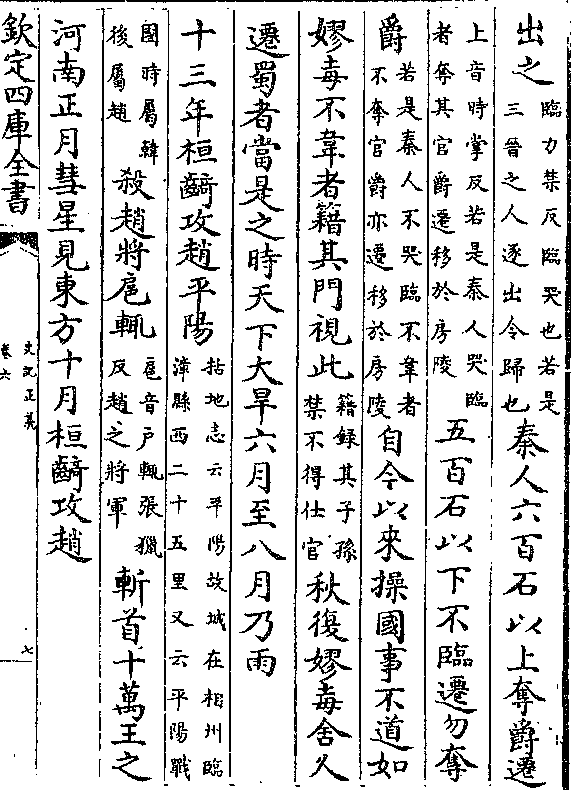 出之臨力禁反臨哭也若是三晉之人逐出令歸也秦人六百石以上奪爵遷
上音時掌反若是秦人哭臨者奪其官爵遷移於房陵五百石以下不臨遷勿奪
爵若是秦人不哭臨不韋者不奪官爵亦遷移於房陵自今以來操國事不道如
嫪毐不韋者籍其門視此籍録其子孫禁不得仕官秋復嫪毐舍人
遷蜀者當是之時天下大旱六月至八月乃雨
十三年桓齮攻趙平陽括地志云平陽故城在相州臨漳縣西二十五里又云平陽戰
國時屬韓後屬趙殺趙將扈輒扈音戶輒張獵反趙之將軍斬首十萬王之
河南正月彗星見東方十月桓齮攻趙
欽定四庫全書
史記正義
卷六
七